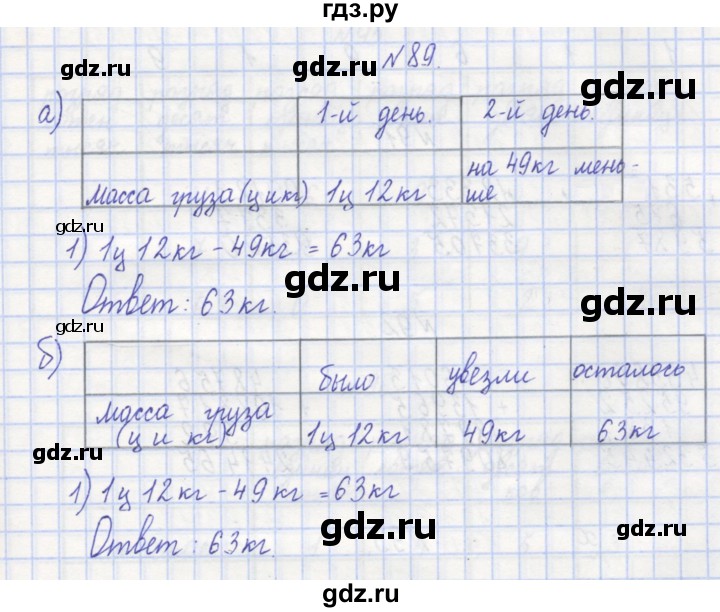 гдз.ру
gdz.ru
gdz.ru
№89.
gdz.ru
а)
1-й день. 2-й день.
gdz.ru
Масса груза (ц и кг) 1ц 12кг на 49кг мень-
ше
gdz.ru
1) 1ц 12кг - 49кг = 63кг
gdz.ru
Ответ: 63кг.
gdz.ru
gdz.ru
б)
было увезли осталось
масса груза
(ц и кг) 1ц 12кг 49кг 63кг
gdz.ru
gdz.ru
1) 1ц 12кг - 49кг = 63кг
gdz.ru
gdz.ru
Ответ: 63кг.
gdz.ru